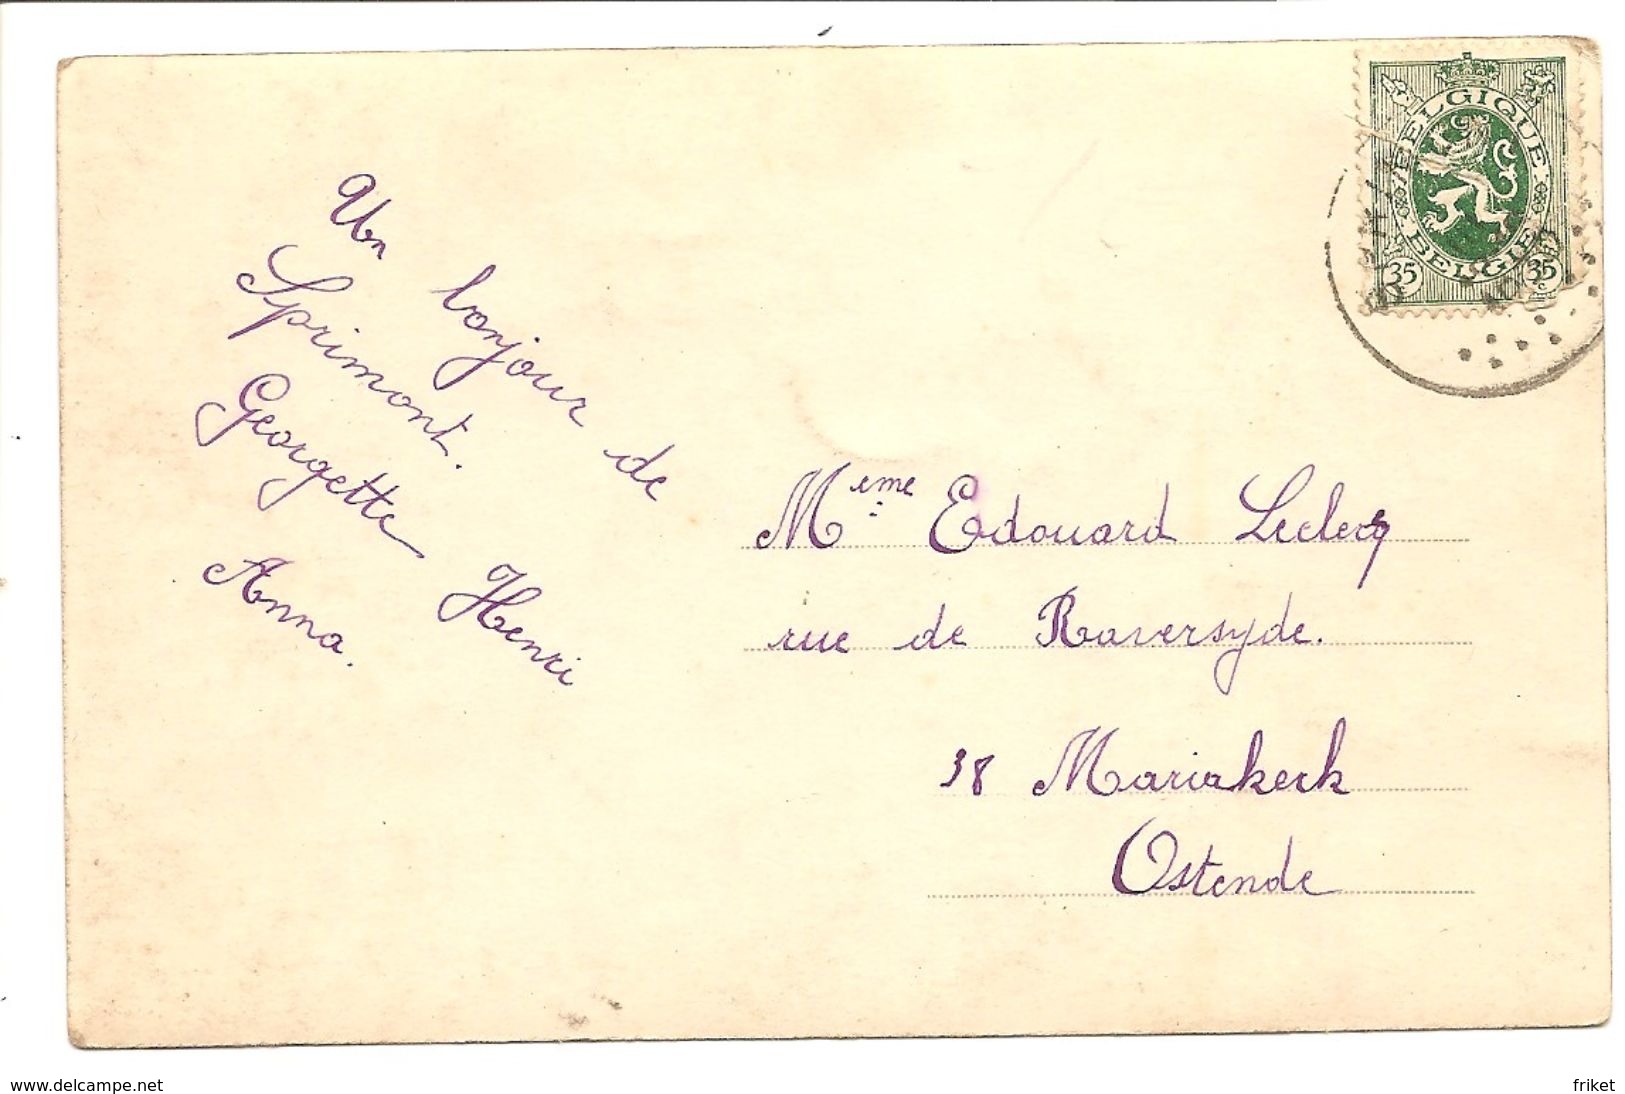 Un bonjour de
Sprimont.
Georgette Henri
Anna.
BELGIQUE
BELGIE
35 35
Meme Edouard Leclercq
rue de Raversyde.
38 Mariakerk
Ostende
www.delcampe.net
friket